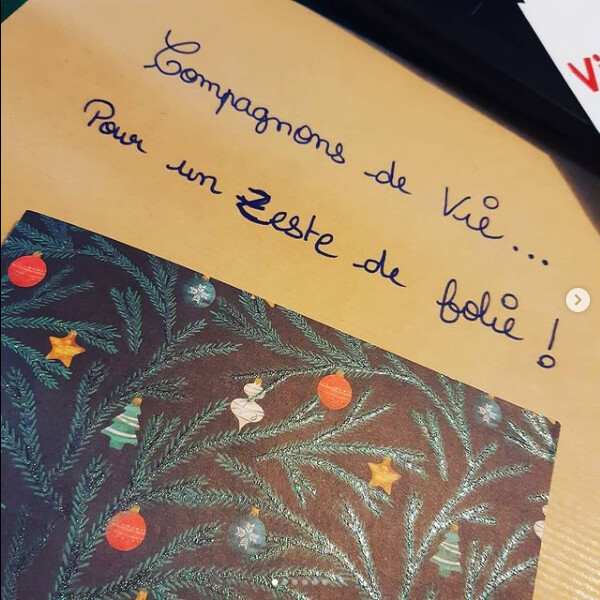 Compagnons de Vie...
Pour un Zeste de folie !